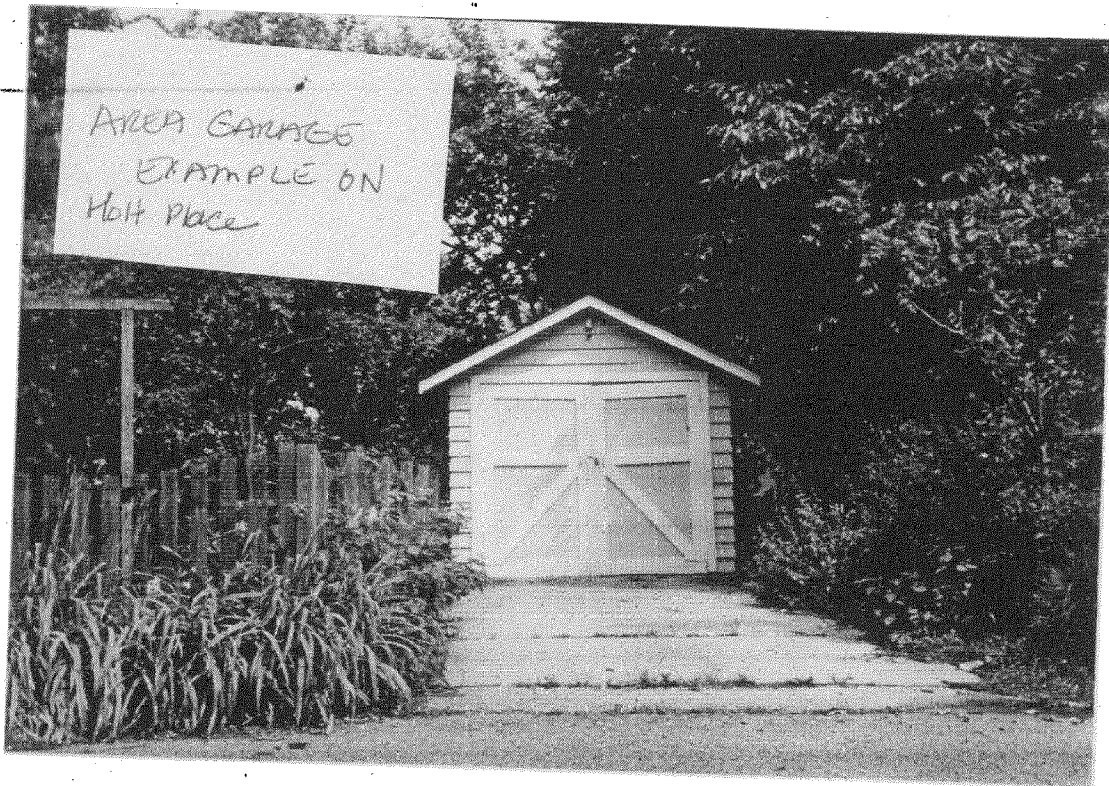 AREA GARAGE
EXAMPLE ON
Holt Place